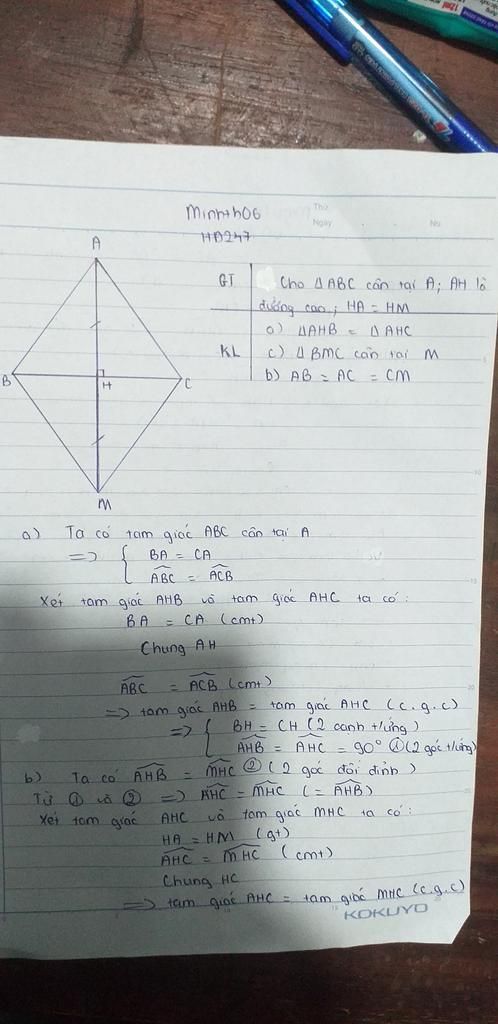 12ml
Minhth06
HB247
Thứ
Ngày
No
GT
Cho △ABC cân tại A; AH là
đường cao; HA = HM
a) △AHB = △AHC
KL
c) △BMC cân tại M
b) AB = AC = CM
A
B
H
C
M
a) Ta có tam giác ABC cân tại A
=> { BA = CA
ABC = ACB
Xét tam giác AHB và tam giác AHC ta có:
BA = CA (cmt)
Chung AH
ABC = ACB (cmt)
=> tam giác AHB = tam giác AHC (c.g.c)
=> { BH = CH (2 cạnh t/ứng)
AHB = AHC = 90° ① (2 góc t/ứng)
b) Ta có AHB = MHC ② (2 góc đối đỉnh)
Từ ① và ② => AHC = MHC (= AHB)
Xét tam giác AHC và tam giác MHC ta có:
HA = HM (gt)
AHC = MHC (cmt)
Chung HC
=> tam giác AHC = tam giác MHC (c.g.c)
KOKUYO